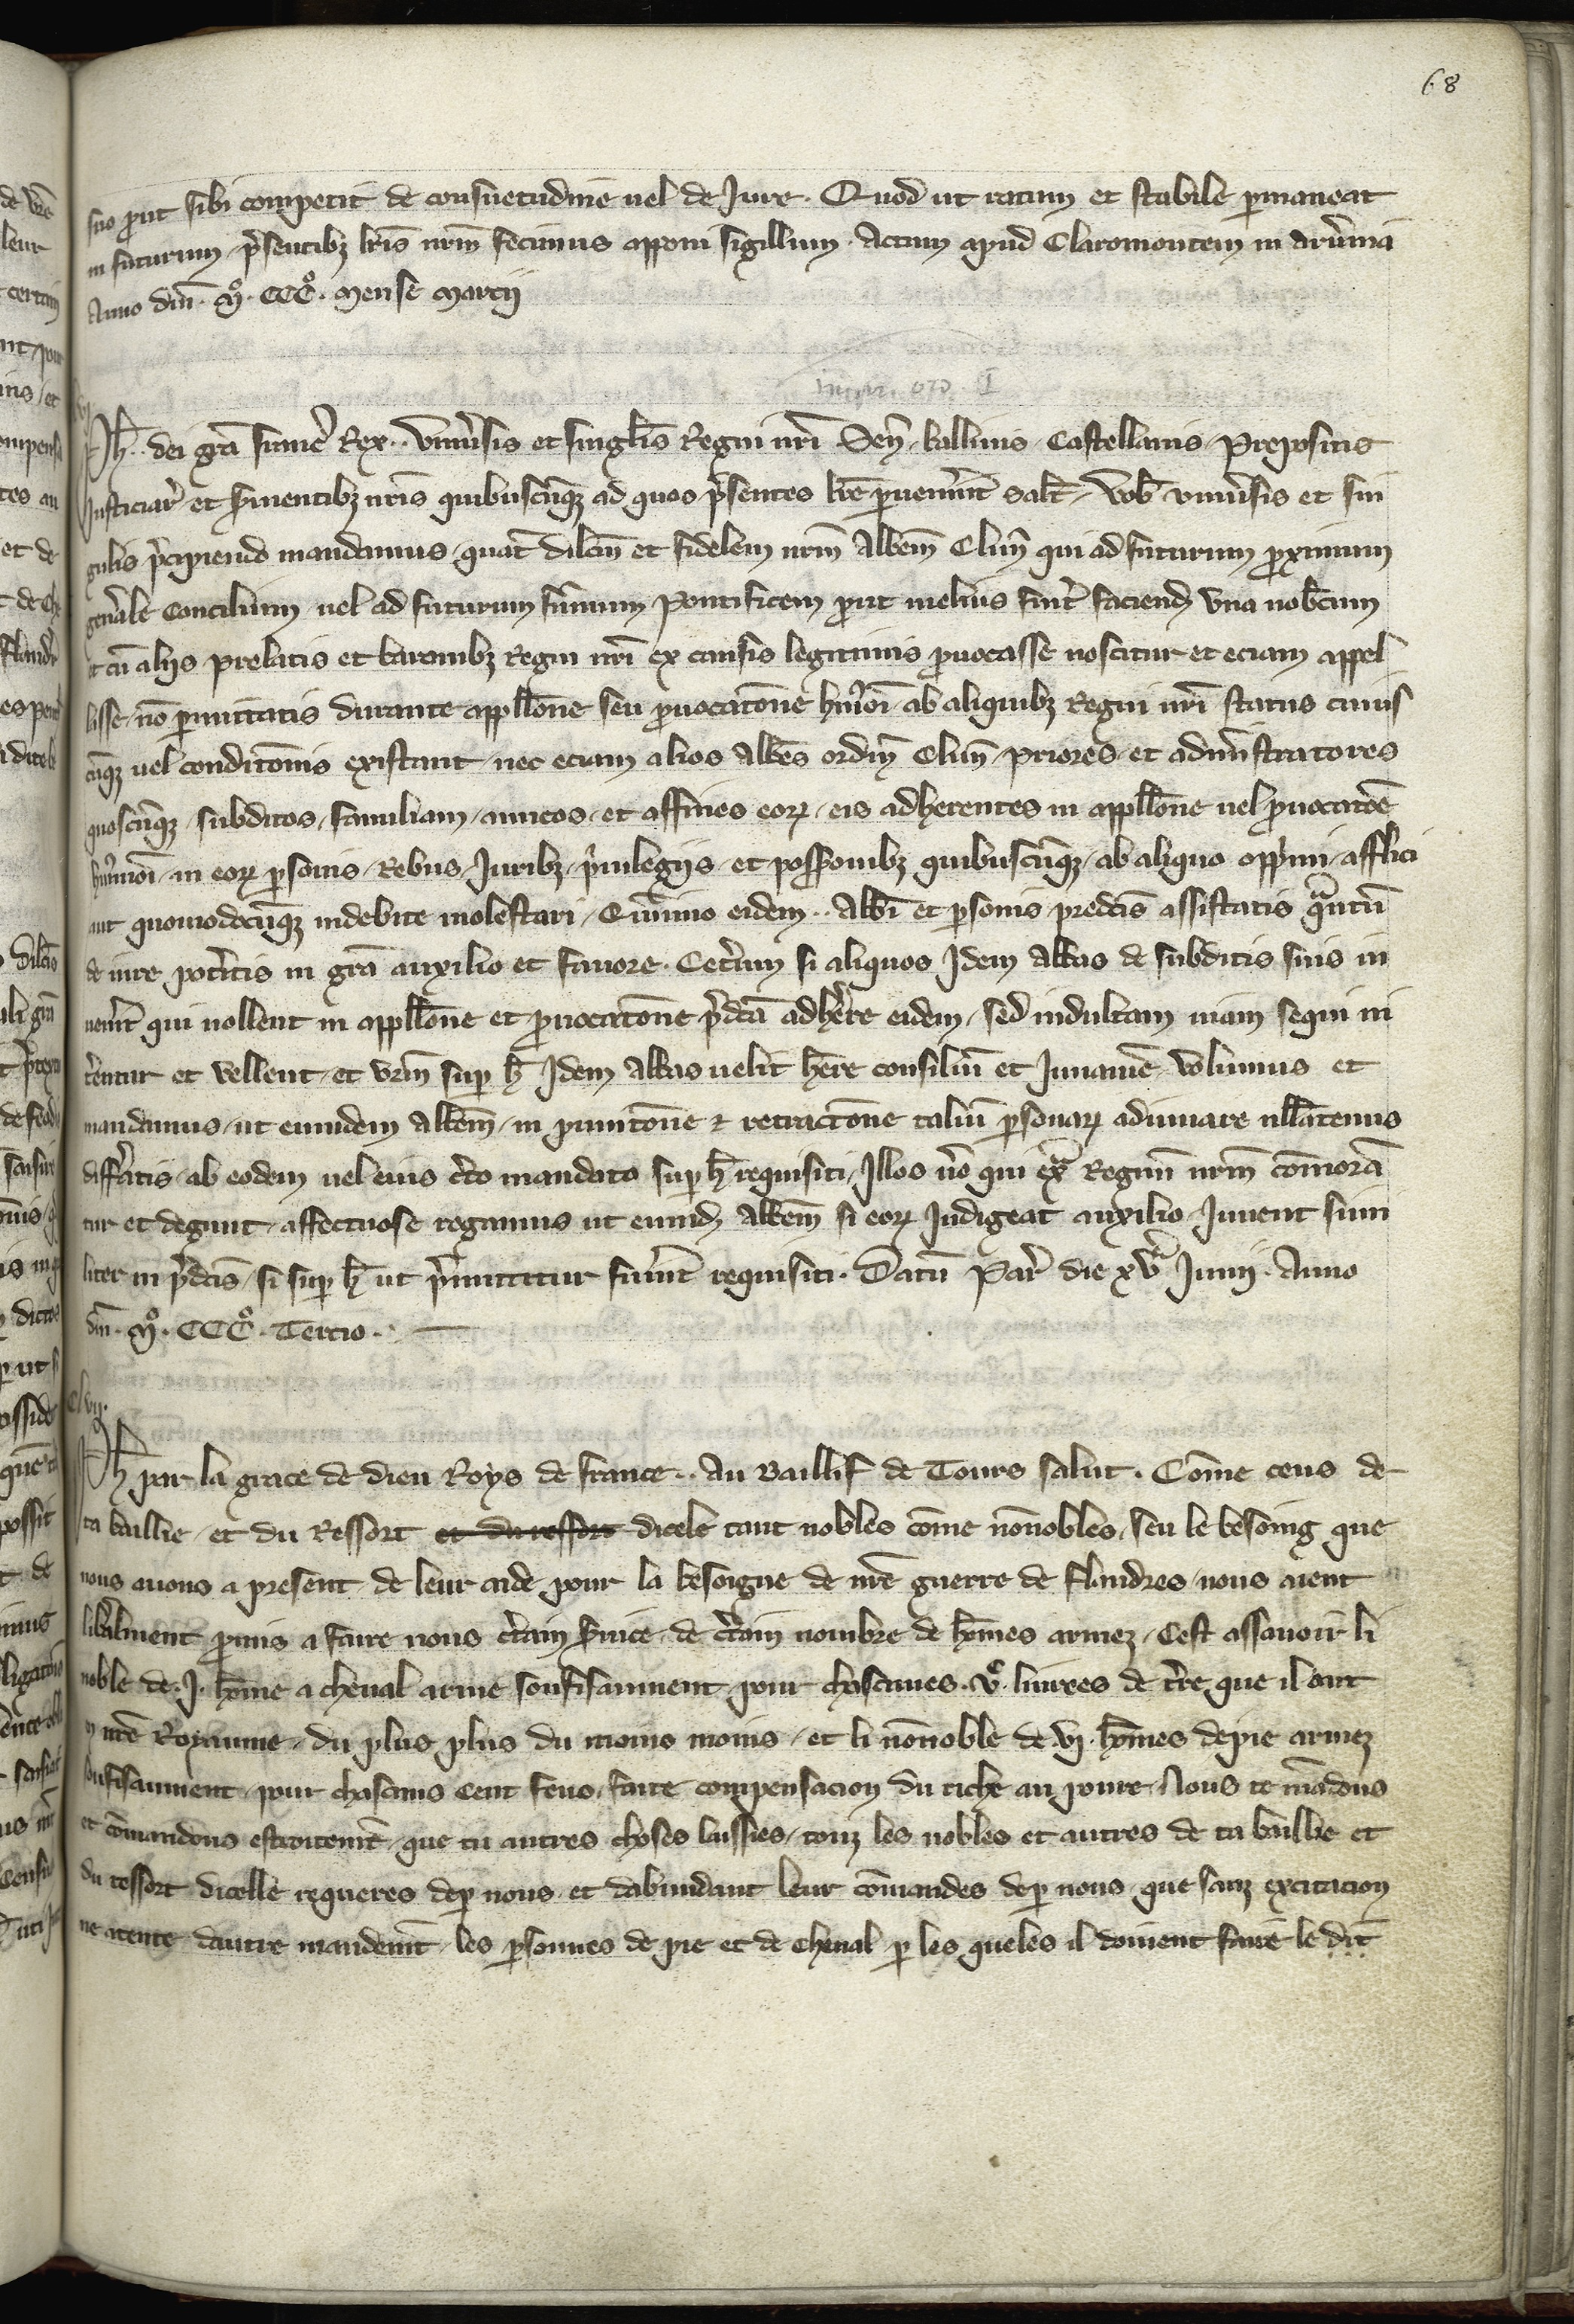 68
suo put sibi competit de consuetudine uel de Jure. Quod ut ratum et stabile pmaneat
in futurum psentibz lris nrm fecimus apponi sigillum. Actum apud Claromontem in aruernia
Anno dni. Mº. CCCº. Mense marcij
Ph. dei gra franc Rex.. Vniuersis et singlis Regni nri Sen, balliuis, Castellanis, prepositis
Justiciar et seruientibz nris quibuscumqz ad quos psentes lre puenerint Salt. Vob vniuersis et sin
gulis pcipiendo mandamus, quat dilcm et fidelem nrm Abbem Clun qui ad futurum pximum
genale Concilium uel ad futurum summum Pontificem put melius fuit faciend vna nobcum
et cu alijs prelatis et baronibz Regni nri ex causis legitimis puocasse noscitur et eciam appel
lasse, no pmittatis durante appllone seu puocatone hmoi ab aliquibz Regni nri status cuius
cuqz uel conditonis existant nec eciam alios Abbes ordin Clun, priores et administratores
quoscumqz, subditos, familiam, amicos, et affines eor, eis adherentes in appllone uel puocatoe
hmoi, in eor psonis, Rebus, Juribz, priuilegijs, et possessionibz quibuscumqz, ab aliquo opprimi, affligi
aut quomodocumqz indebite molestari, Quinimo eidem.. Abbi et psonis predcis assistatis quantu
de iure potitis in gra auxilio et fauore. Ceterum si aliquos Idem Abbas de subditis suis in
uenerit qui nollent in appllone et puocatone pdca adherere eidem, sed indultam uiam sequi ni
terentur et vellent, et vrm sup h Idem Abbas uelit here consiliu et Juuame, Volumus et
mandamus, ut eumdem Abbem, in punitone et retractone taliu psonar adiuuare nllatenus
differatis, ab eodem uel eius certo mandato sup h requisiti, Illos vero qui extra Regnum nrm comoran
tur et degunt, affectuose rogamus ut eumd Abbem si eor Indigeat auxilio Juuent simi
liter in pdcis, si sup h ut pmittitur fuerint requisiti. Datu Par die xva Junij. Anno
dni. Mº. CCCº. Tercio.
clvij.
Ph par la grace de dieu Roys de france.. Au Baillif de Tours salut. Come ceus de
ta baillie, et du Ressort et du ressort dicele tant nobles come nonnobles, seu le besoing que
nous auons a present de leur aide pour la besoigne de nre guerre de Flandres, nous aient
liberalment pmis a faire nous certain seruice, de certain nombre de homes armez, Cest assauoir li
noble de .j. home a cheual arme souffisamment pour chascunes .vc. liures de terre que il ont
en nre Royaume, du plus plus du moins moins, et li nonnoble de .vj. homes de pie armez
souffisamment, pour chascuns Cent feus, faite compensacion du riche au poure, Nous te mandons
et comandons estroitement, que tu autres choses laissies, touz les nobles et autres de ta baillie et
du ressort dicelle requeres dep nous et dabundant leur comandes dep nous, que sanz excitacion
ne atente dautre mandement les psonnes de pie et de Cheual p les queles il doiuent faire le dit